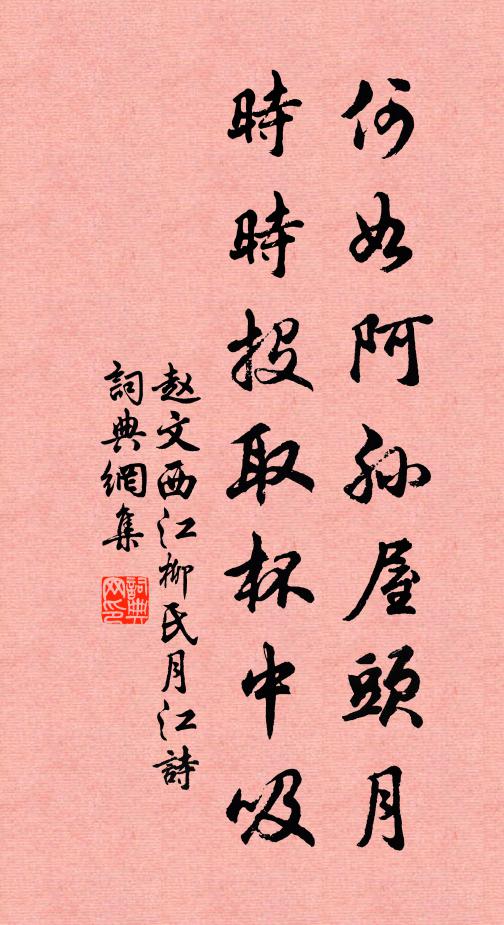 何如阿孫屋頭月
時時投取杯中吸
赵文西江柳氏月江詩
詞典網集
詞典网印